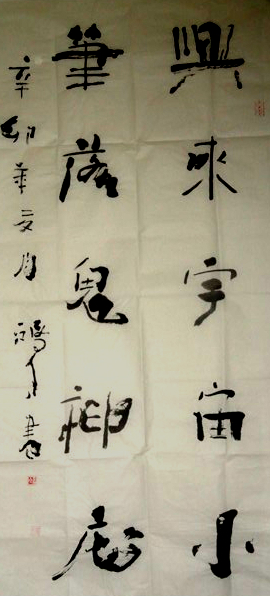 興來宇宙小
筆落鬼神
辛卯年 月 書